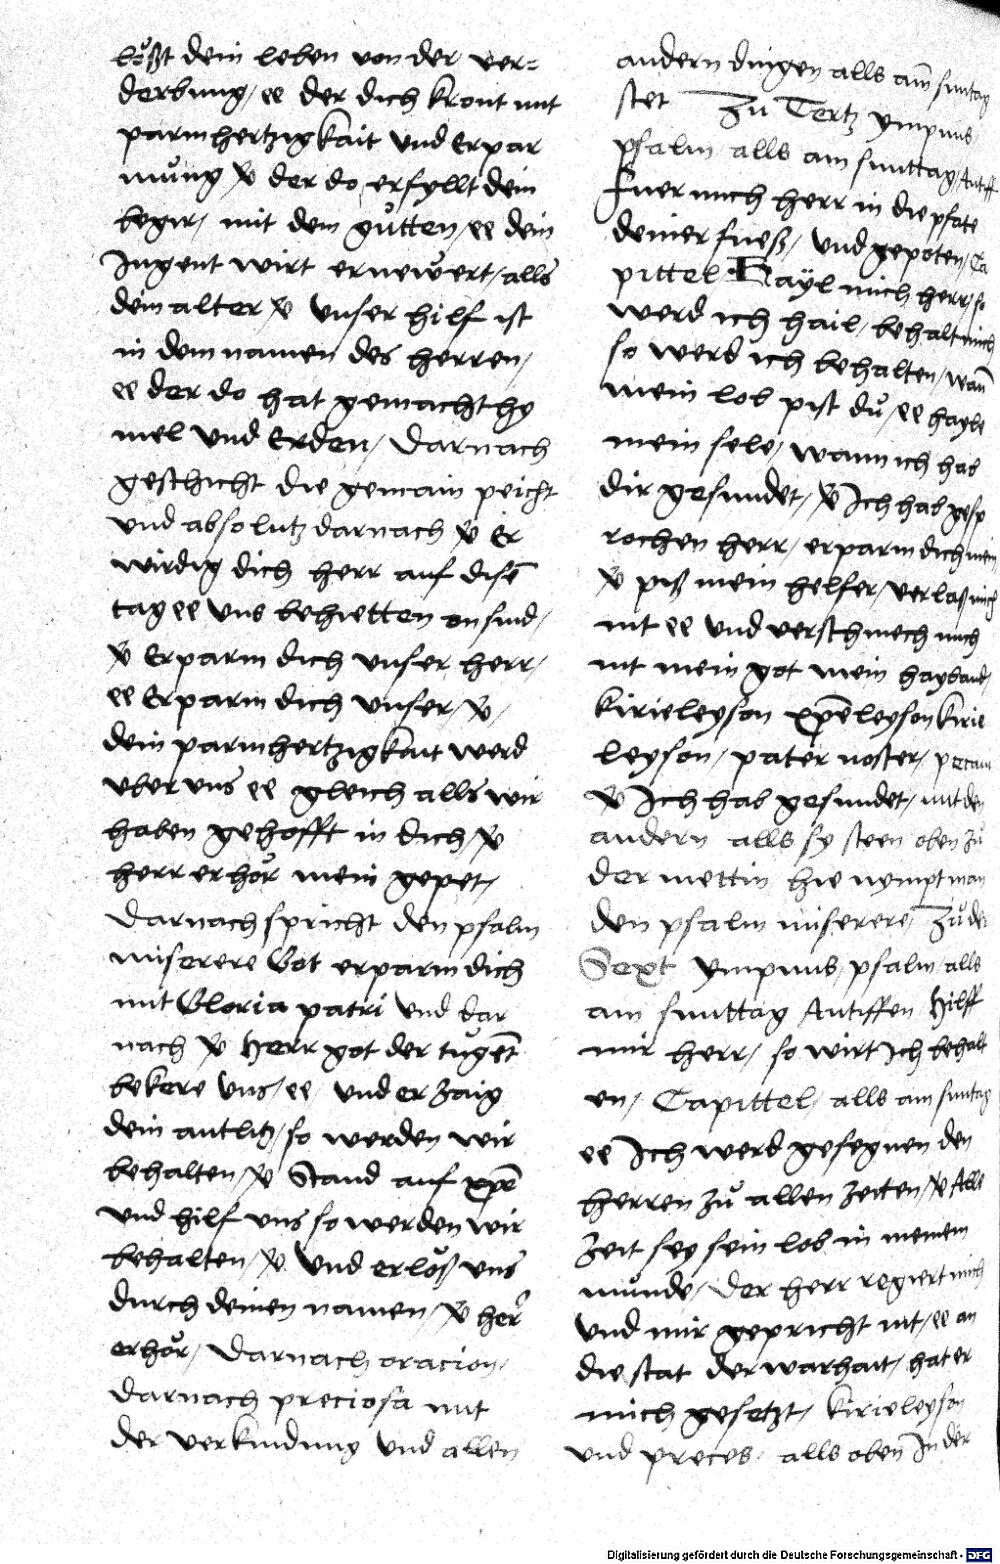 lößt dein leben von der ver=
derbung/ ee der dich kront mit
parmhertzigkait und Erpar
mung ꝟ der do erfyllt dein
begir/ mit dem gutten/ ee dein
Jugent wirt ernewert/ alls
dem alter/ ꝟ Unser hilf ist
in dem namen des herren/
ee der do hat gemacht hy
mel und Erden/ Darnach
geschicht die gemain peicht
und absolutz darnach ꝟ Er
wirdig dich herr auf disē
tag ee uns behietten on sund/
ꝟ Erparm dich unser herr/
ee Erparm dich unser/ ꝟ/
dein parmhertzigkait werd
uber uns ee gleich alls wir
haben gehofft in dich/ ꝟ
herr erhör mein gepet/
Darnach spricht den psalm
miserere Got erparm dich
mit Gloria patri und dar
nach ꝟ Herr got der tugēt
bekere uns/ ee/ und erzaig
dein antlitz/ so werden wir
behalten/ ꝟ Stand auf xpē
und hilf uns so werden wir
behalten/ ꝟ Und erlöß uns
durch deinen namen/ ꝟ her
erhör/ Darnach oracion/
Darnach preciosa mit
der verkundung und allen
andern dingen alls am suntag
stet Zu Tertz ympnus
psalm alls am sunttag/ Antiff
Fuer mich herr in die pfate
deiner fueß/ und gepoten/ Ca
pittel Hayl mich herr/ so
werd ich hail/ behalt mich
so werd ich behalten/ wañ
mein lob pist du/ ee hayle
mein sele/ wann ich hab
dir gesundet/ ꝟ Ich hab gesp
rochen herr/ erparm dich mein
ꝟ piß mein helfer/ verlaß mich
nit ee und verschmech mich
nit mein got mein hayland/
kirieleyson xpēleyson kirie
leyson/ pater noster/
ꝟ Ich hab gesundet/ mit den
andern alls sy steen oben zu
der mettin hie nympt man
den psalm miserere/ Zu der
Sext ympnus/ psalm/ alls
am sunttag Antiffen Hilff
mir herr/ so wirt Ich behalt
en/ Capittel/ alls am suntag
ee Ich werd gesegnen den
herren zu allen zeiten/ ꝟ Alle
zeit sey sein lob in meinem
munde/ Der herr regiert mich
Und mir gepricht nit/ ee an
die stat der warhait/ hat er
mich gesetzt/ kirieleyson
und preces/ alls oben In der
Digitalisierung gefördert durch die Deutsche Forschungsgemeinschaft - DFG